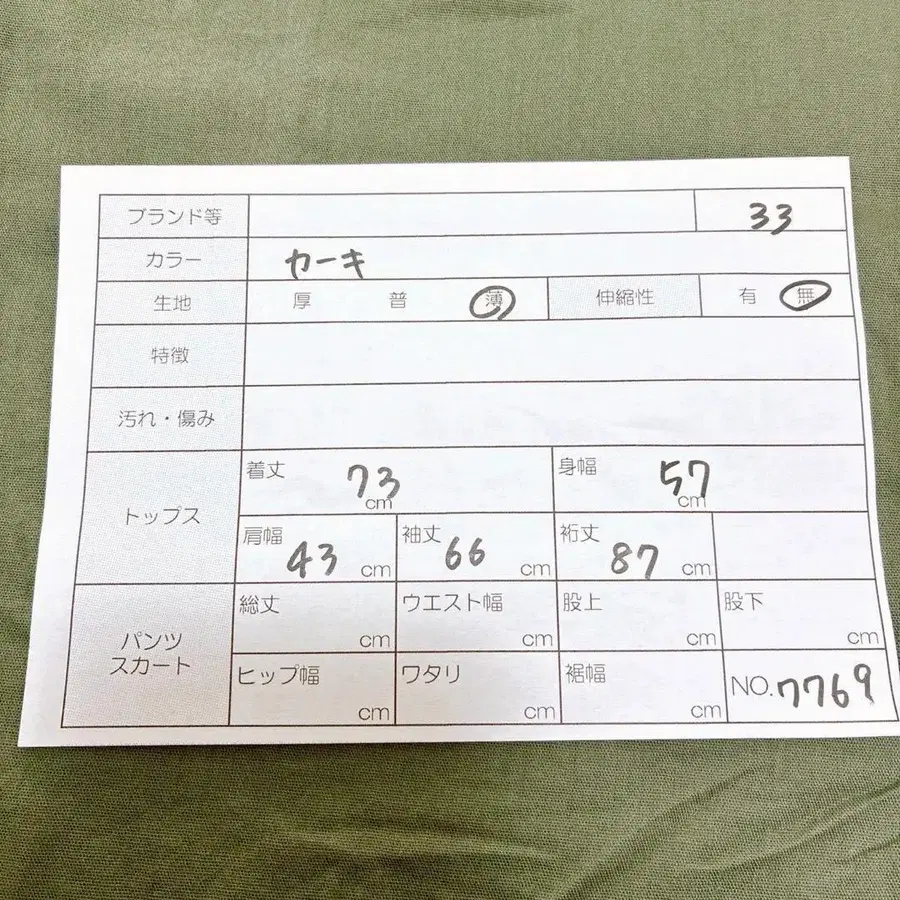 ブランド等 33
カラー カーキ
生地 厚 普 薄 伸縮性 有 無
特徴
汚れ・傷み
トップス
着丈 73 cm 身幅 57 cm
肩幅 43 cm 袖丈 66 cm 裄丈 87 cm
パンツ
スカート
総丈 cm ウエスト幅 cm 股上 cm 股下 cm
ヒップ幅 cm ワタリ cm 裾幅 cm NO.7769